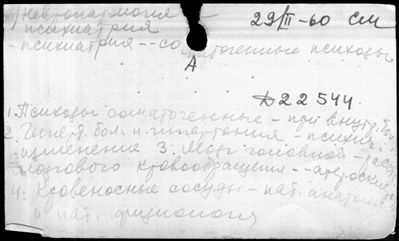 1) Невропатология и
психиатрия
- психиатрия -- соматогенные психозы
29/II-60 см
А
Д22544
1. Психозы соматогенные - при внутр. бол.
2. Гиперт. бол. и гипертония - психич.
изменения 3. Мозг головной - расстр.
мозгового кровообращения -
4. Кровеносные сосуды - пат. анатомия
и пат. физиология